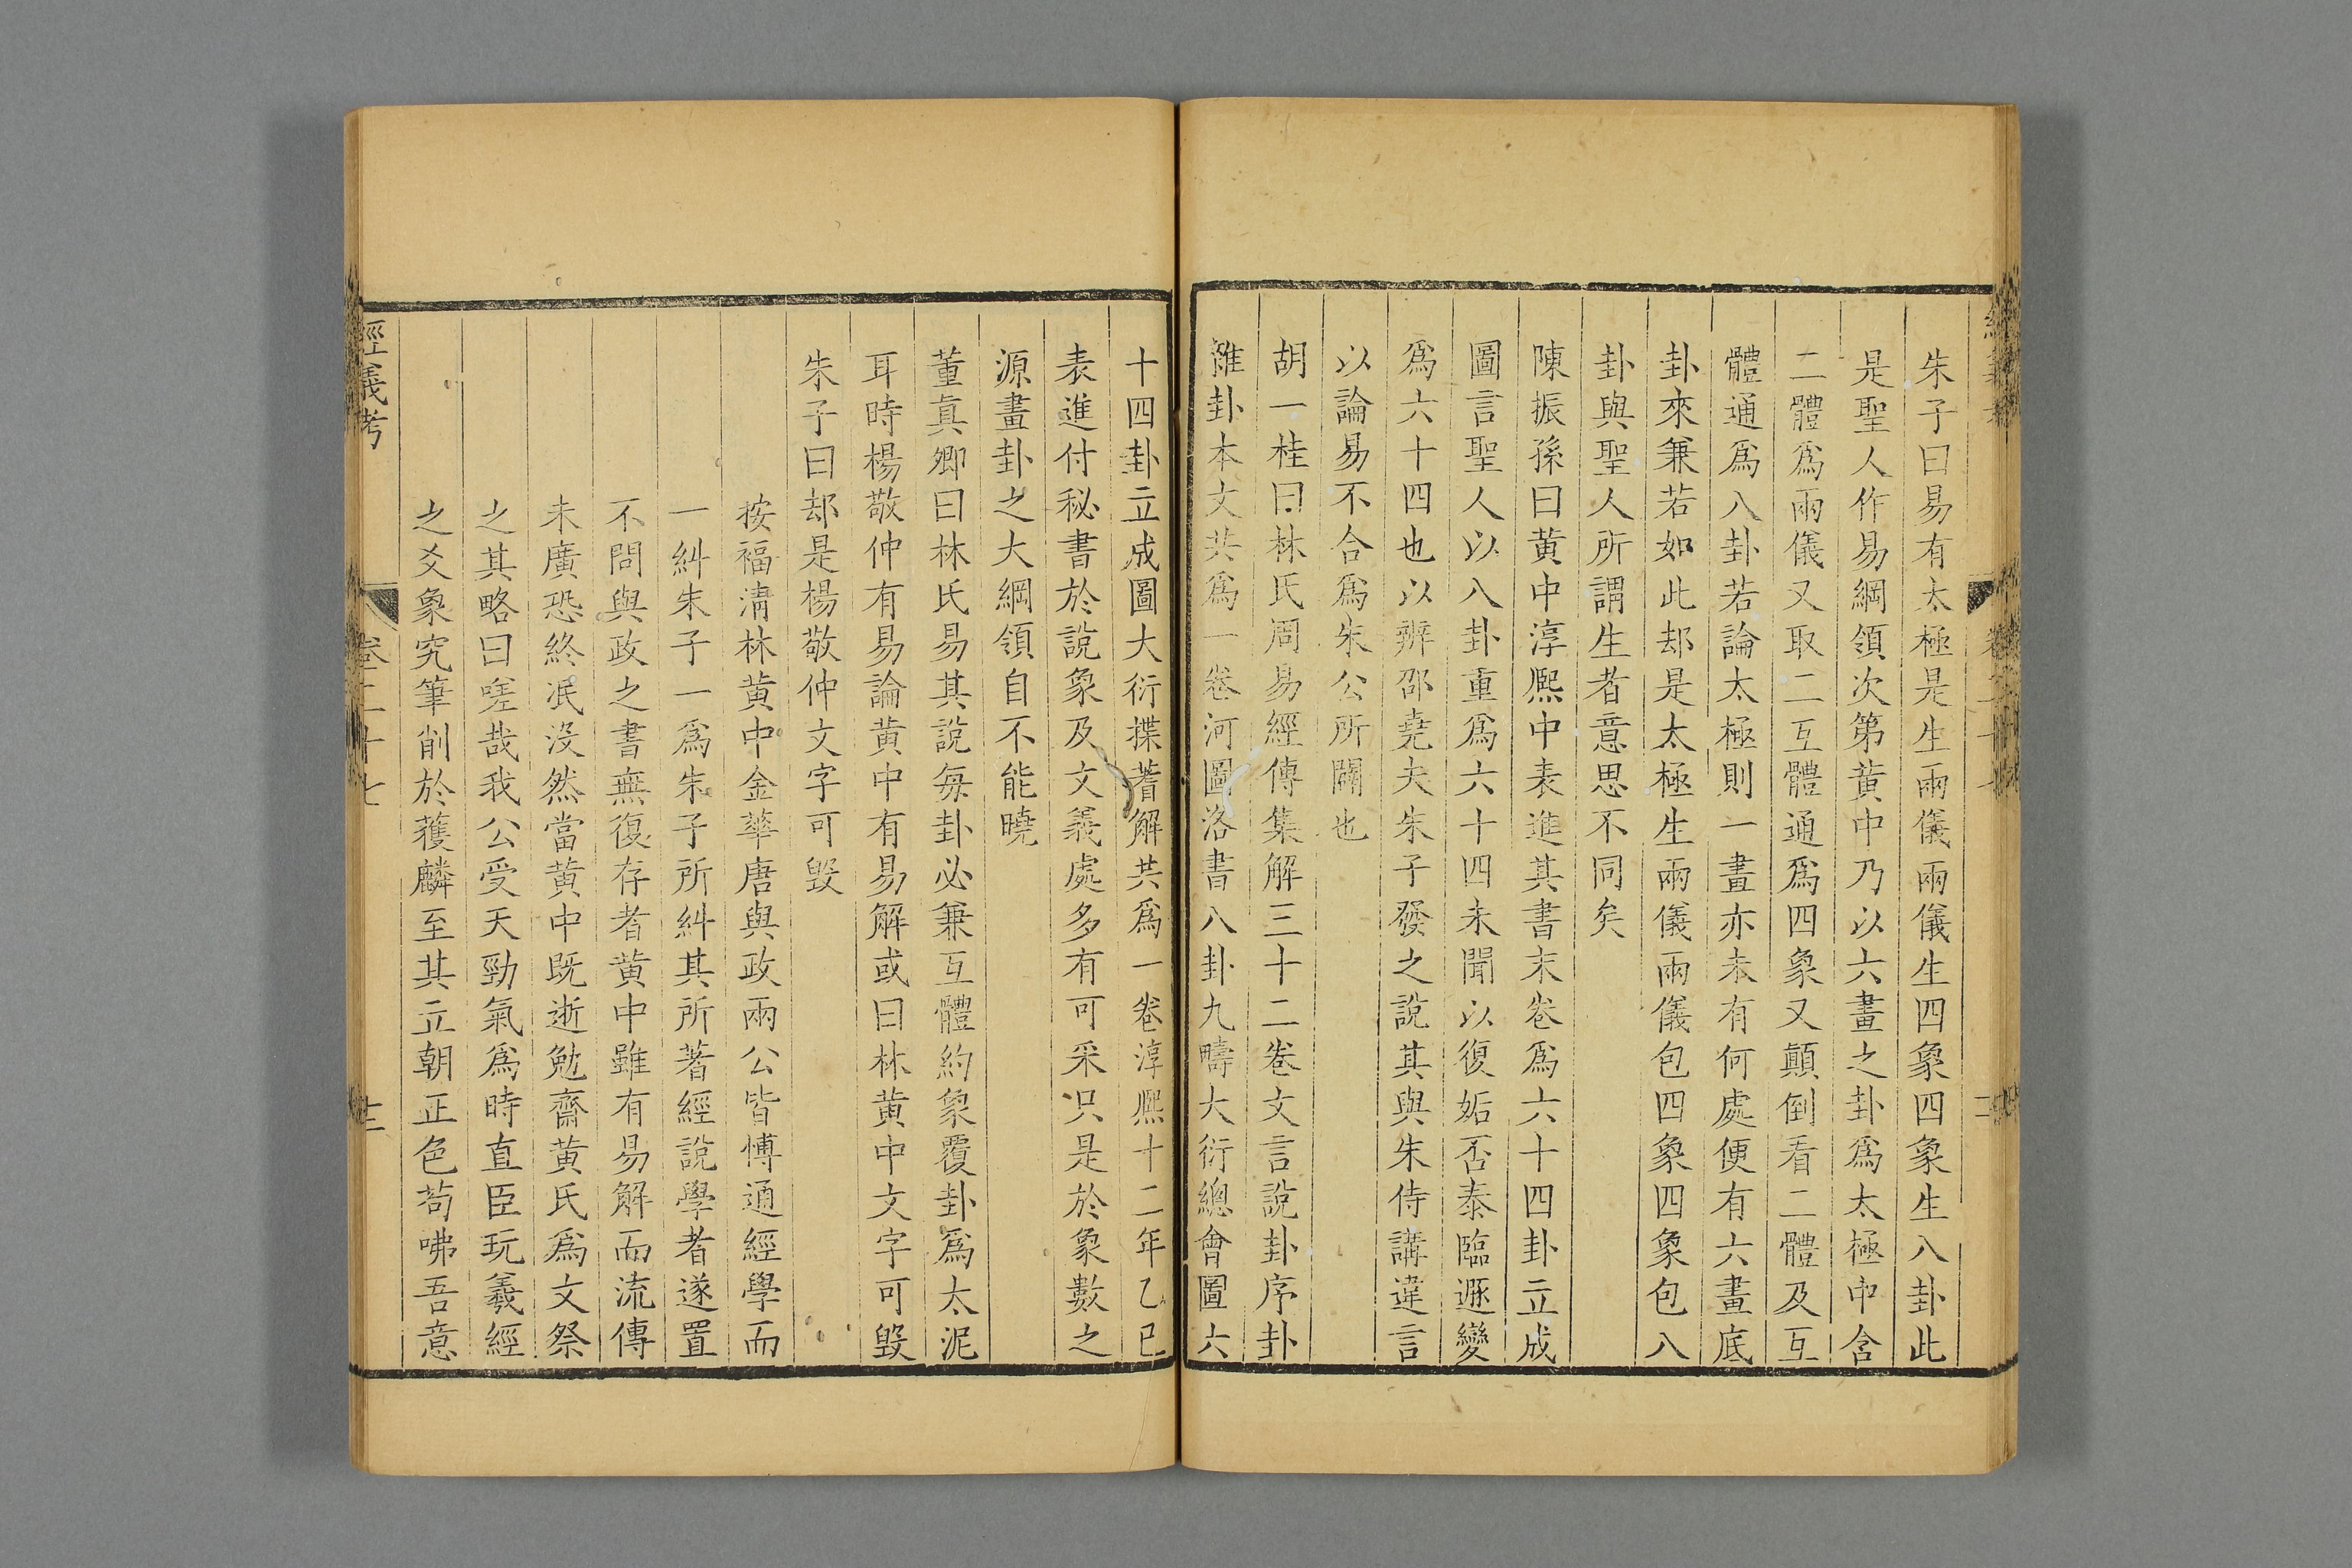 朱子曰易有太極是生兩儀兩儀生四象四象生八卦此
是聖人作易綱領次第黄中乃以六畫之卦爲太極中含
二體爲兩儀又取二互體通爲四象又顛倒看二體及互
體通爲八卦若論太極則一畫亦未有何處便有六畫底
卦來兼若如此却是太極生兩儀兩儀包四象四象包八
卦與聖人所謂生者意思不同矣
陳振孫曰黄中淳熙中表進其書末卷爲六十四卦立成
圖言聖人以八卦重爲六十四未聞以復姤否泰臨遯變
爲六十四也以辨邵堯夫朱子發之說其與朱侍講違言
以論易不合爲朱公所闢也
胡一桂曰林氏周易經傳集解三十二卷文言說卦序卦
雜卦本文共爲一卷河圖洛書八卦九疇大衍總會圖六
十四卦立成圖大衍揲蓍解共爲一卷淳熙十二年乙巳
表進付秘書於說象及文義處多有可采只是於象數之
源畫卦之大綱領自不能曉
董真卿曰林氏易其說每卦必兼互體約象覆卦爲太泥
耳時楊敬仲有易論黄中有易解或曰林黄中文字可毁
朱子曰却是楊敬仲文字可毁
按福清林黄中金華唐與政兩公皆博通經學而
一糾朱子一爲朱子所糾其所著經說學者遂置
不問與政之書無復存者黄中雖有易解而流傳
未廣恐終泯没然當黄中既逝勉齋黄氏爲文祭
之其略曰嗟哉我公受天勁氣爲時直臣玩羲經
之爻象究筆削於獲麟至其立朝正色苟咈吾意
經義考
卷二十七